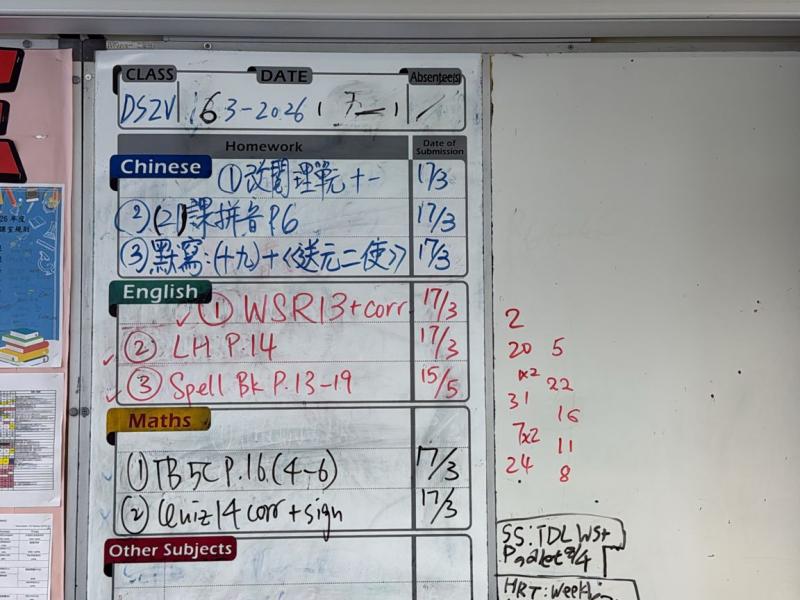 CLASS DATE Absentee(s)
DS2V 16 3-2026
Homework Date of Submission
Chinese
①改閱理單元十一 17/3
②(21)課拼音P.6 17/3
③默寫:(十九)+《送元二使》 17/3
English
①WSR13+corr 17/3
②LH P.14 17/3
③Spell Bk P.13-19 15/5
Maths
①TB5C P.16.(4-6) 17/3
②Quiz14 corr+sign 17/3
Other Subjects
2
20 5
x2 22
31 16
7x2 11
24 8
SS:TDL WS+
4
HRT:Weekl